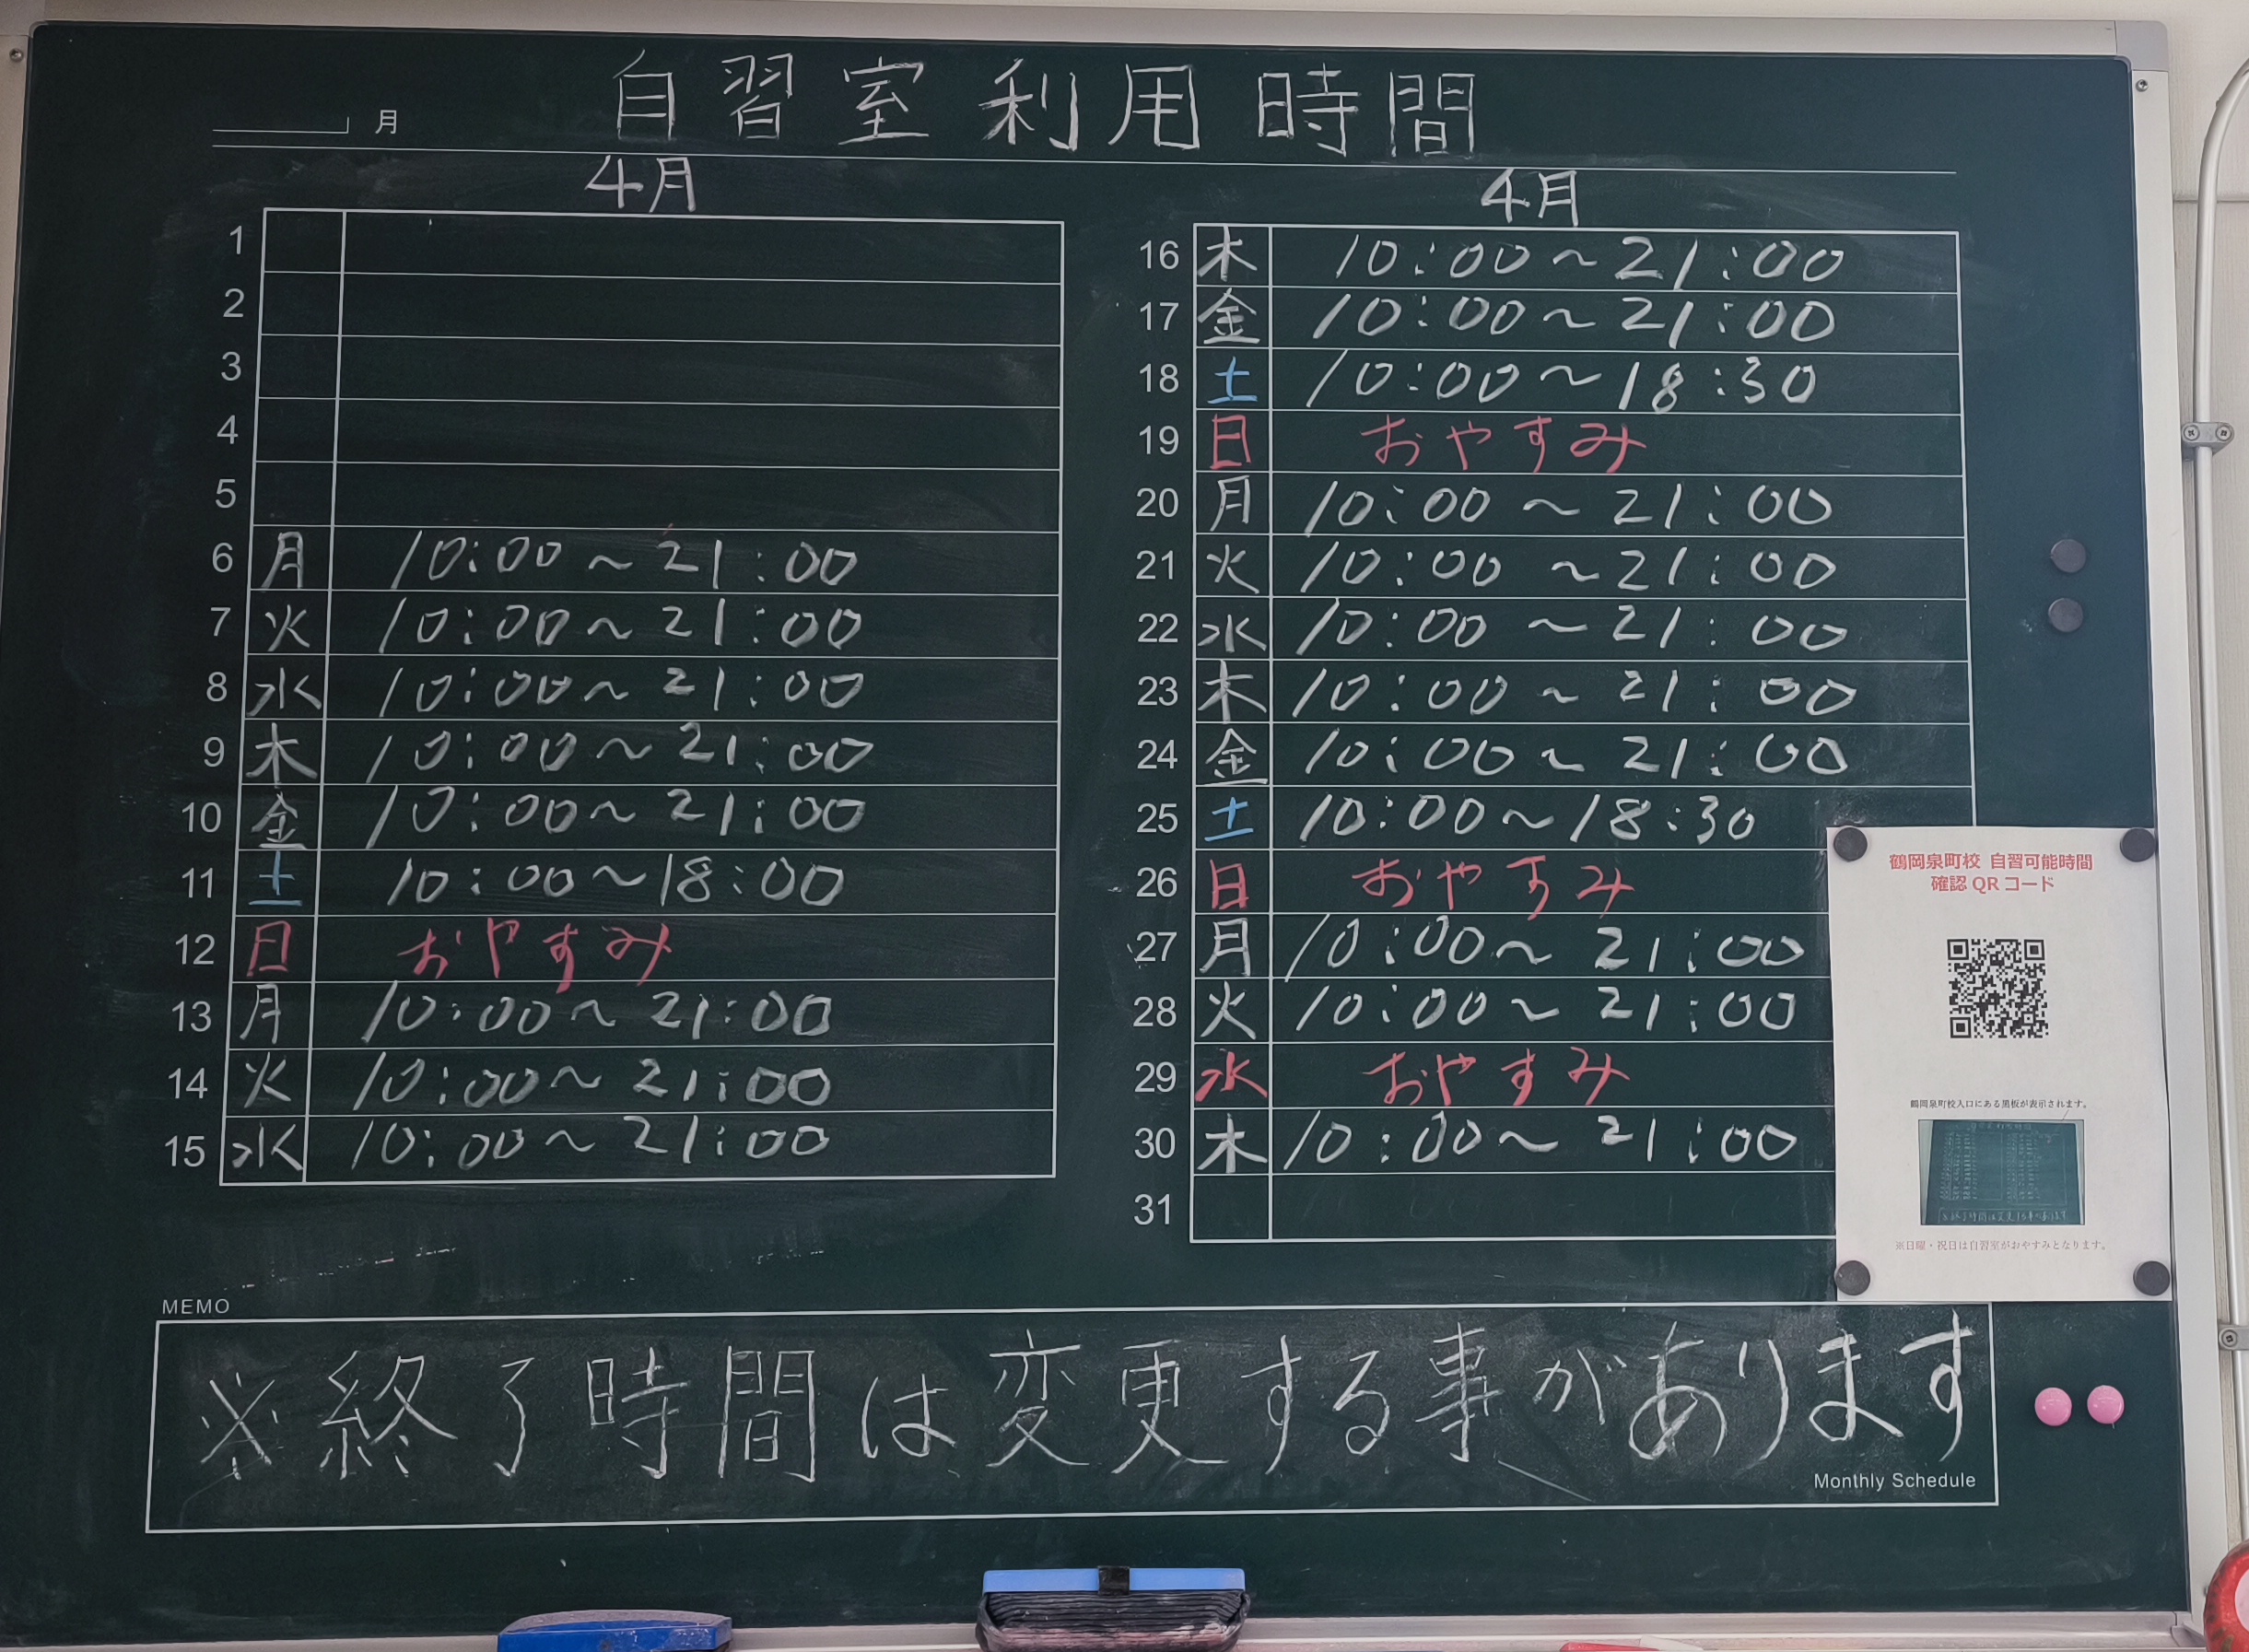 自習室利用時間
月
4月
1
2
3
4
5
6 月 10:00～21:00
7 火 10:00～21:00
8 水 10:00～21:00
9 木 10:00～21:00
10 金 10:00～21:00
11 土 10:00～18:00
12 日 おやすみ
13 月 10:00～21:00
14 火 10:00～21:00
15 水 10:00～21:00
4月
16 木 10:00～21:00
17 金 10:00～21:00
18 土 10:00～18:30
19 日 おやすみ
20 月 10:00～21:00
21 火 10:00～21:00
22 水 10:00～21:00
23 木 10:00～21:00
24 金 10:00～21:00
25 土 10:00～18:30
26 日 おやすみ
27 月 10:00～21:00
28 火 10:00～21:00
29 水 おやすみ
30 木 10:00～21:00
31
鶴岡泉町校 自習可能時間
確認QRコード
鶴岡泉町校入口にある黒板が表示されます。
※日曜・祝日は自習室がおやすみとなります。
MEMO
※終了時間は変更する事があります
Monthly Schedule